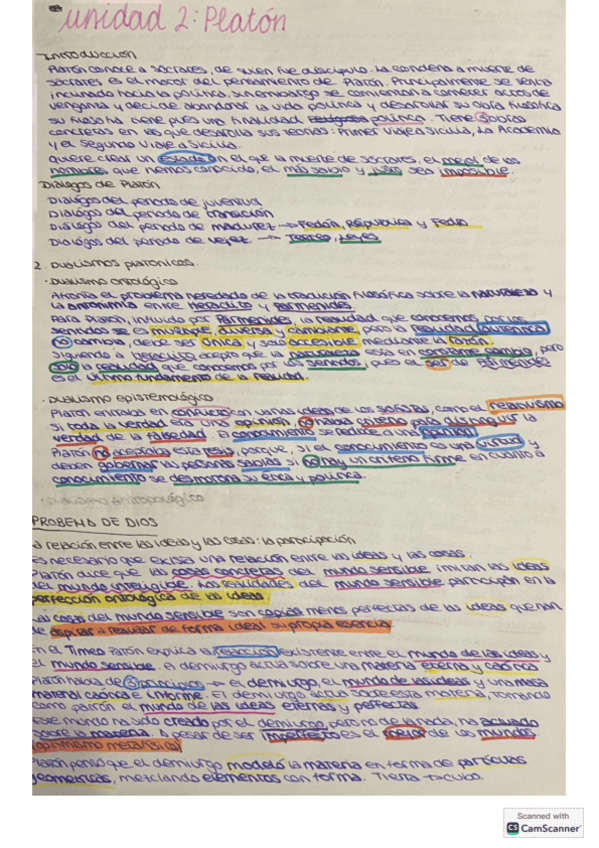 unidad 2: Platón
Introducción
Platón conoce a Sócrates, de quien fue discípulo. La condena a muerte de
Sócrates es el motor del pensamiento de Platón. Principalmente se sentía
inclinado hacia la política, sin embargo se comienzan a cometer actos de
venganza y decide abandonar la vida política y desarrollar su obra filosófica
su filosofía tiene pues una finalidad política. Tiene 3 obras
concretas en las que desarrolla sus teorías: Primer Viaje a Sicilia, La Academia
y el Segundo Viaje a Sicilia.
Quiere crear un Estado en el que la muerte de Sócrates, el mejor de los
hombres que hemos conocido, el más sabio y justo sea imposible.
Diálogos de Platón
Diálogos del periodo de juventud
Diálogos del periodo de transición
Diálogos del periodo de madurez → Fedón, República y Fedro
Diálogos del periodo de vejez → Teeteo, Leyes
2. Dualismos platónicos.
· Dualismo ontológico
Afronta el problema heredado de la tradición filosófica sobre la naturaleza y
la antonimia entre Heráclito y Parménides
Para Platón, influido por Parménides, la realidad que conocemos por los
sentidos es múltiple, diversa y cambiante pero la realidad auténtica
no cambia, debe ser única y solo accesible mediante la razón.
Siguiendo a Heráclito acepta que la naturaleza está en constante cambio, pero
solo la realidad que conocemos por los sentidos, pues el ser de Parménides
es el último fundamento de la realidad.
· Dualismo epistemológico
Platón entraba en conflicto con varias ideas de los sofistas, como el relativismo
Si toda la verdad era una opinión, no había criterio para distinguir la
verdad de la falsedad. El conocimiento se reduce a una opinión
Platón no aceptaba esta tesis, porque, si el conocimiento es una virtud y
deben gobernar las personas sabias si no hay un criterio firme en cuanto a
conocimiento se desmorona su ética y política.
· Dualismo antropológico
PROBLEMA DE DIOS
La relación entre las ideas y las cosas: la participación
Es necesario que exista una relación entre las ideas y las cosas.
Platón dice que las cosas concretas del mundo sensible imitan las ideas
del mundo inteligible. Las realidades del mundo sensible participan en la
perfección ontológica de las ideas
Las cosas del mundo sensible son copias menos perfectas de las ideas que han
de aspirar a realizar de forma ideal su propia esencia
En el Timeo Platón explica la relación existente entre el mundo de las ideas y
el mundo sensible. El demiurgo actúa sobre una materia eterna y caótica
Platón habla de 3 principios → el demiurgo, el mundo de las ideas y una masa
material caótica e informe. El demiurgo actúa sobre esta materia, tomando
como patrón el mundo de las ideas eternas y perfectas.
Este mundo ha sido creado por el demiurgo, pero no de la nada, ha actuado
sobre la materia. A pesar de ser imperfecto es el mejor de los mundos
(optimismo metafísico)
Platón pensó que el demiurgo modeló la materia en forma de partículas
geométricas, mezclando elementos con forma. Tierra → cubo.
Scanned with
CS CamScanner